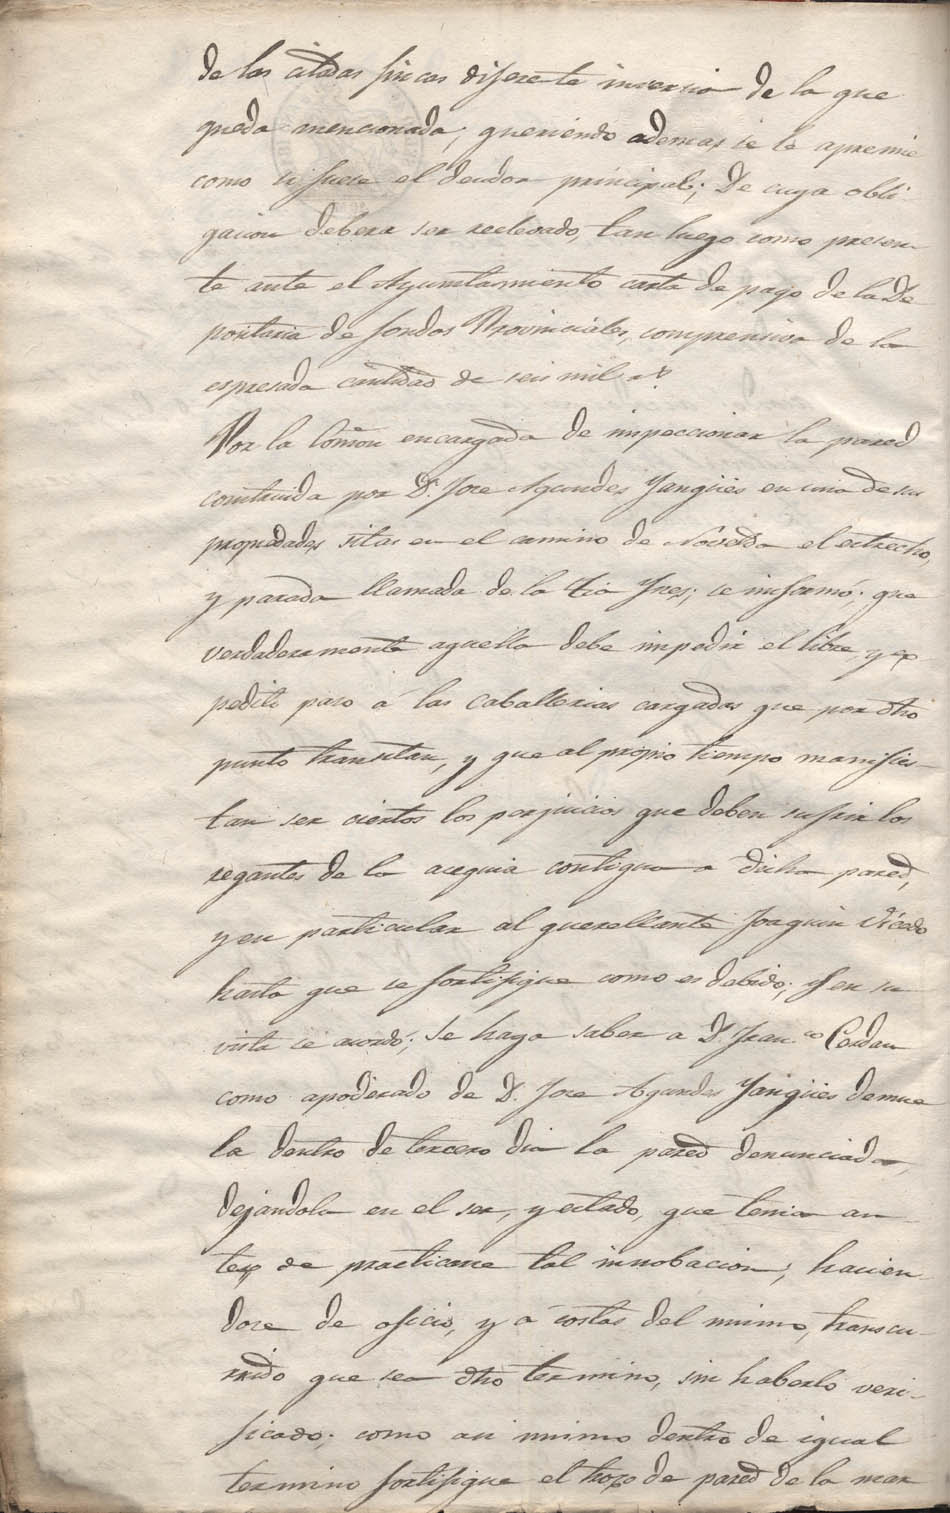 de las citadas fincas diferente inversion de la que
queda mencionada; queriendo ademas se le apremie
como si fuese el deudor principal; De cuya obli
gacion debera ser relevado, tan luego como presen-
te ante el Ayuntamiento carta de pago de la De
positaria de fondos Provinciales, comprensiva de la
espresada cantidad de seis mil r.^s
Por la Comon encargada de inspeccionar la pared
construida por D. Jose Agundes Yangües en una de sus
propiedades sitas en el camino de Novelda el estrecho,
y parada llamada de la tia Ynes; se informó; que
verdaderamente aquella debe impedir el libre, y ex
pedito paso á las caballerias cargadas que por dho
punto transitan, y que al propio tiempo manifies-
tan ser ciertos los perjuicios que deben sufrir los
regantes de la acequia contigua a dicha pared,
y en particular al querellante Joaquin Vicedo
hasta que se fortifique como es debido; y en su
vista se acordó; se haga saber a D. Fran.^co Cerdan
como apoderado de D. Jose Agundes Yangües demue
la dentro de tercero dia la pared denunciada,
dejandola en el ser, y estado, que tenia an-
tes de practicarse tal innobacion; hacien-
dose de oficio, y a costas del mismo, transcu-
rrido que sea dho termino, sin haberlo veri-
ficado; como asi mismo dentro de igual
termino fortifique el trozo de pared de la mar